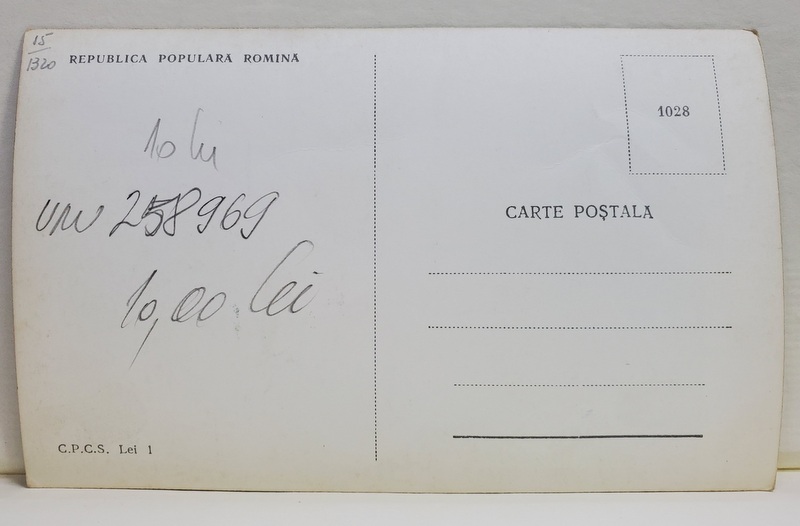 15
1320
REPUBLICA POPULARĂ ROMINĂ
1028
10 lei
258969
CARTE POȘTALĂ
10,00 lei
C.P.C.S. Lei 1